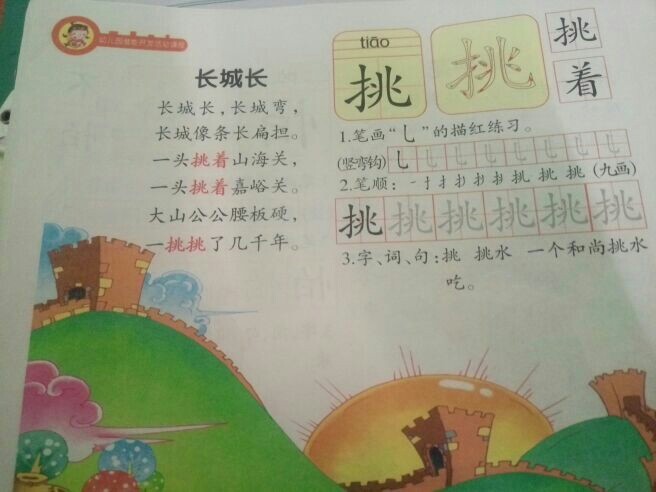 幼儿园潜能开发活动课程
长城长
长城长，长城弯，
长城像条长扁担。
一头挑着山海关，
一头挑着嘉峪关。
大山公公腰板硬，
一挑挑了几千年。
tiāo
挑
挑
挑
着
1.笔画“乚”的描红练习。
(竖弯钩) 乚 乚 乚 乚 乚 乚 乚 乚
2.笔顺：
挑 挑 (九画)
挑 挑 挑 挑 挑 挑
3.字、词、句：挑 挑水 一个和尚挑水
吃。